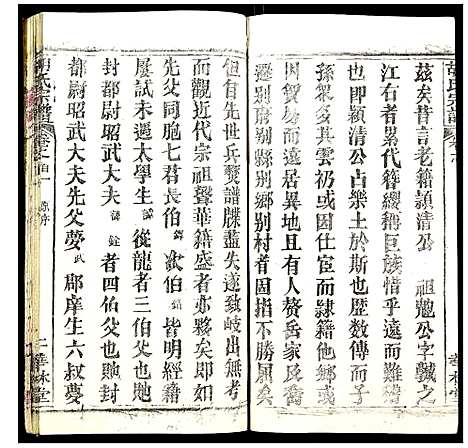 胡氏宗譜
茲矣昔言老籍潁清公 祖覲公字誠之
江右者累代簪纓稱巨族惜乎遠而難稽
也即穎清公占樂土於斯也歷數傳而子
孫眾多其雲仍或因仕宦而隸籍他鄉或
因貿易而旅居異地間有人贅岳家長裔
遷別府別縣別鄉別村者固指不勝屈矣
但自先世兵燹譜牒盡失遂致岐出無考
而觀近代宗祖聲華籍盛者亦夥矣即如
先父同胞七君長伯 次伯 皆明經籍
屢試未遇太學生 從龍者三伯父也貤
封都尉昭武大夫 者四伯父也貤
都尉昭武大夫先父夢武 郡庠生六叔夢
胡氏宗譜
原序
二
華林堂
華林堂